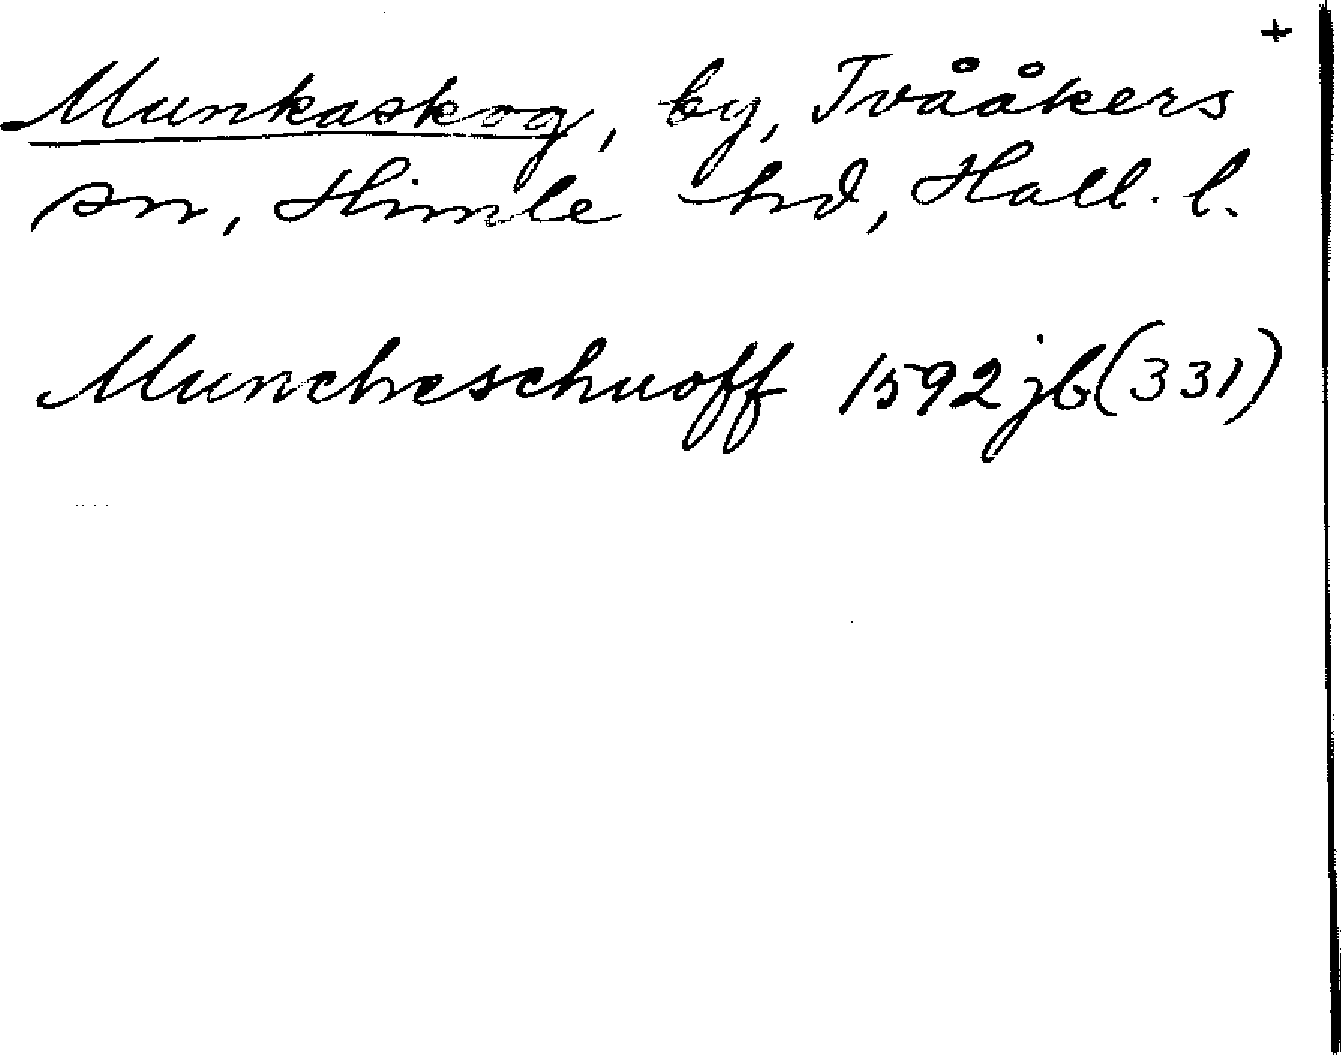 +
Munkaskog, by, Tvååkers
sn, Himle hd, Hall. l.
Muncheschuoff 1592 jb (331)